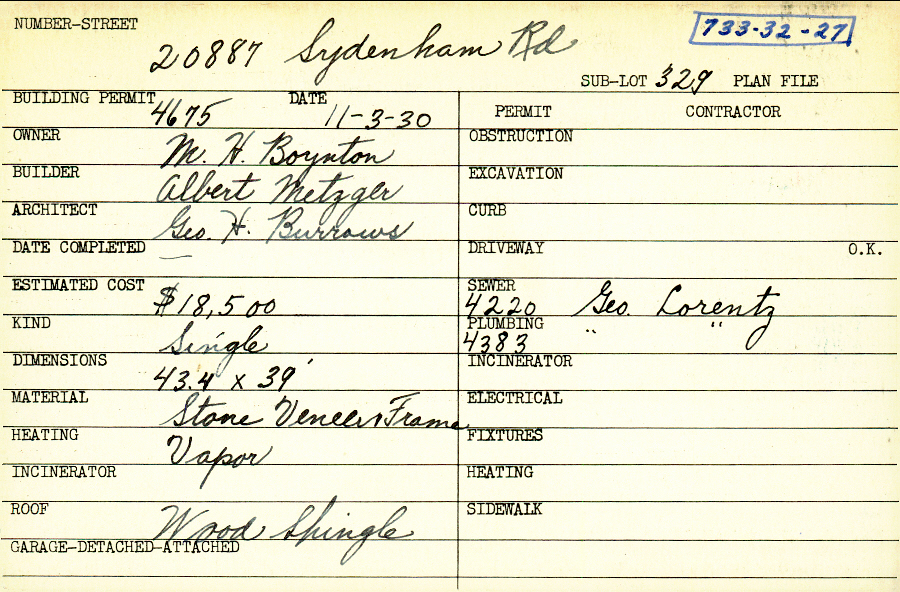 NUMBER-STREET 20887 Sydenham Rd 733-32-27
SUB-LOT 329 PLAN FILE
BUILDING PERMIT 4675 DATE 11-3-30
OWNER M. H. Boynton
BUILDER Albert Metzger
ARCHITECT Geo. H. Burrows
DATE COMPLETED —
ESTIMATED COST $18,500
KIND Single
DIMENSIONS 43.4 x 39'
MATERIAL Stone Veneer & Frame
HEATING Vapor
INCINERATOR
ROOF Wood Shingle
GARAGE-DETACHED-ATTACHED
PERMIT CONTRACTOR
OBSTRUCTION
EXCAVATION
CURB
DRIVEWAY O.K.
SEWER 4220 Geo. Lorentz
PLUMBING 4383 " "
INCINERATOR
ELECTRICAL
FIXTURES
HEATING
SIDEWALK